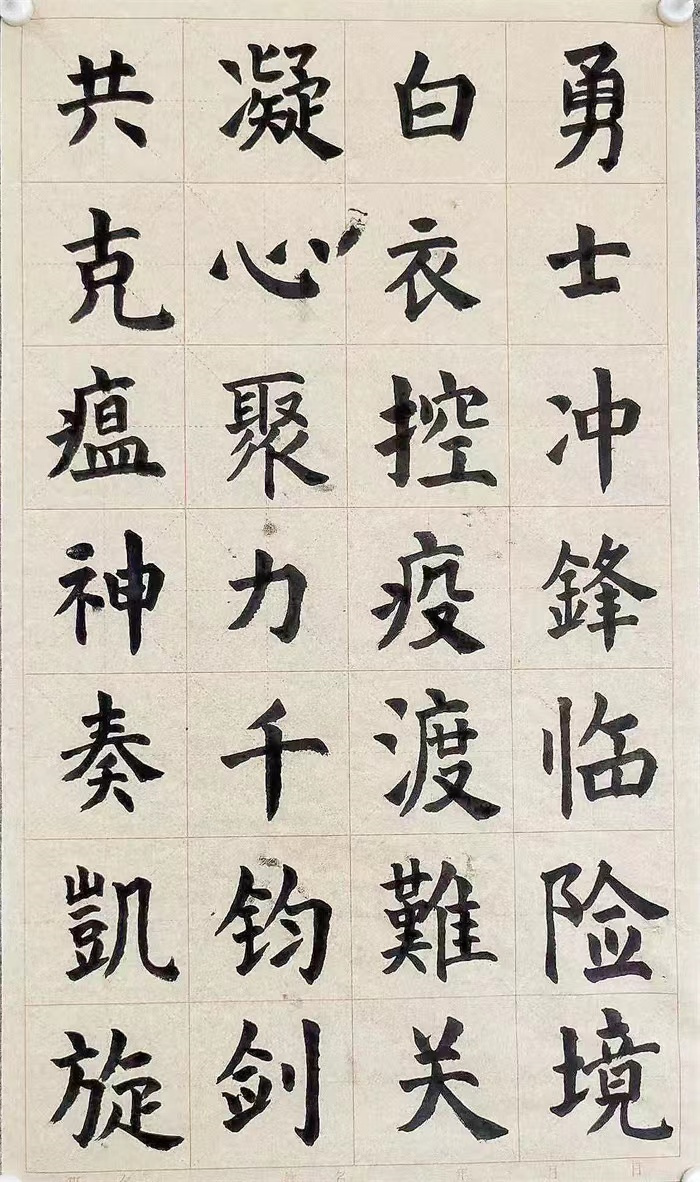 勇士冲鋒临险境
白衣控疫渡難关
凝心聚力千钧剑
共克瘟神奏凱旋